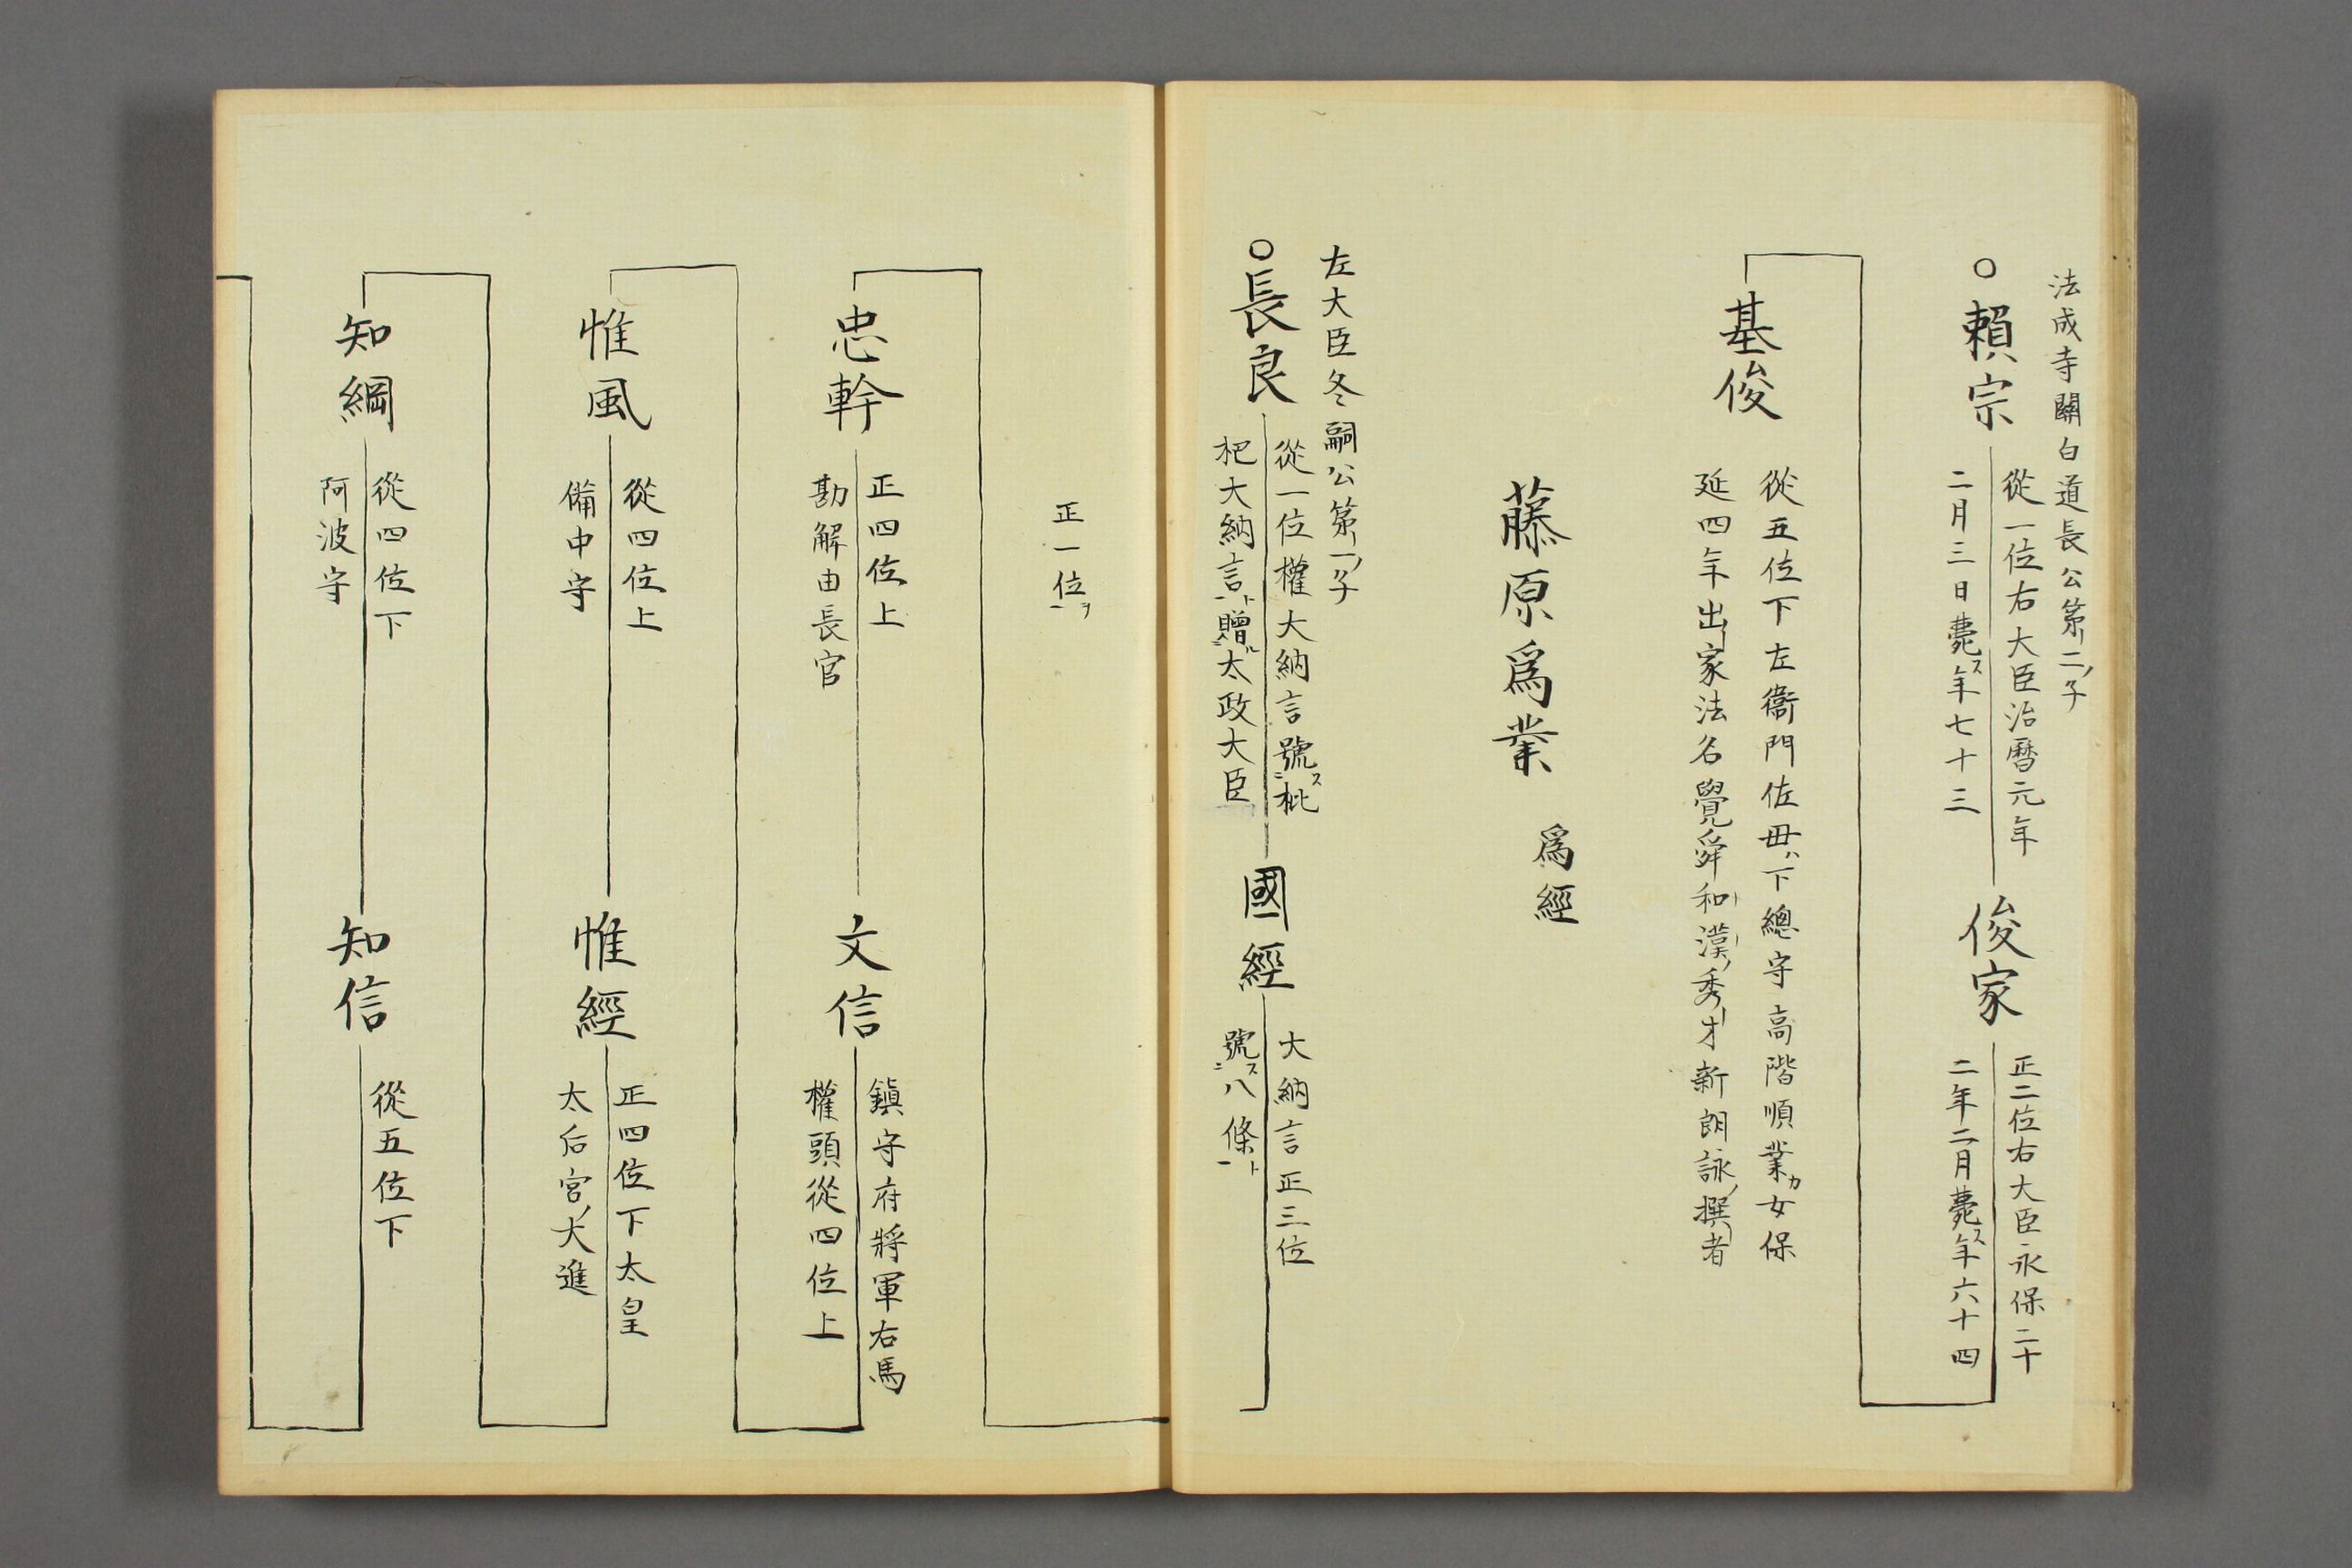 法成寺關白道長公第二ノ子
○賴宗
從一位右大臣治曆元年
二月三日薨ス年七十三
俊家
正二位右大臣永保二十
二年二月薨ス年六十四
基俊
從五位下左衞門佐毋ハ下總守高階順業カ女保
延四年出家法名覺舜和漢ノ秀才新朗詠ノ撰者
藤原爲業
爲經
左大臣冬嗣公第一ノ子
○長良
從一位權大納言號ス二枇
杷大納言ト一贈ル二太政大臣
國經
大納言正三位
號ス二八條ト一
正一位ヲ一
忠幹
正四位上
勘解由長官
文信
鎭守府將軍右馬
權頭從四位上
惟風
從四位上
備中守
惟經
正四位下太皇
太后宮ノ大進
知綱
從四位下
阿波守
知信
從五位下